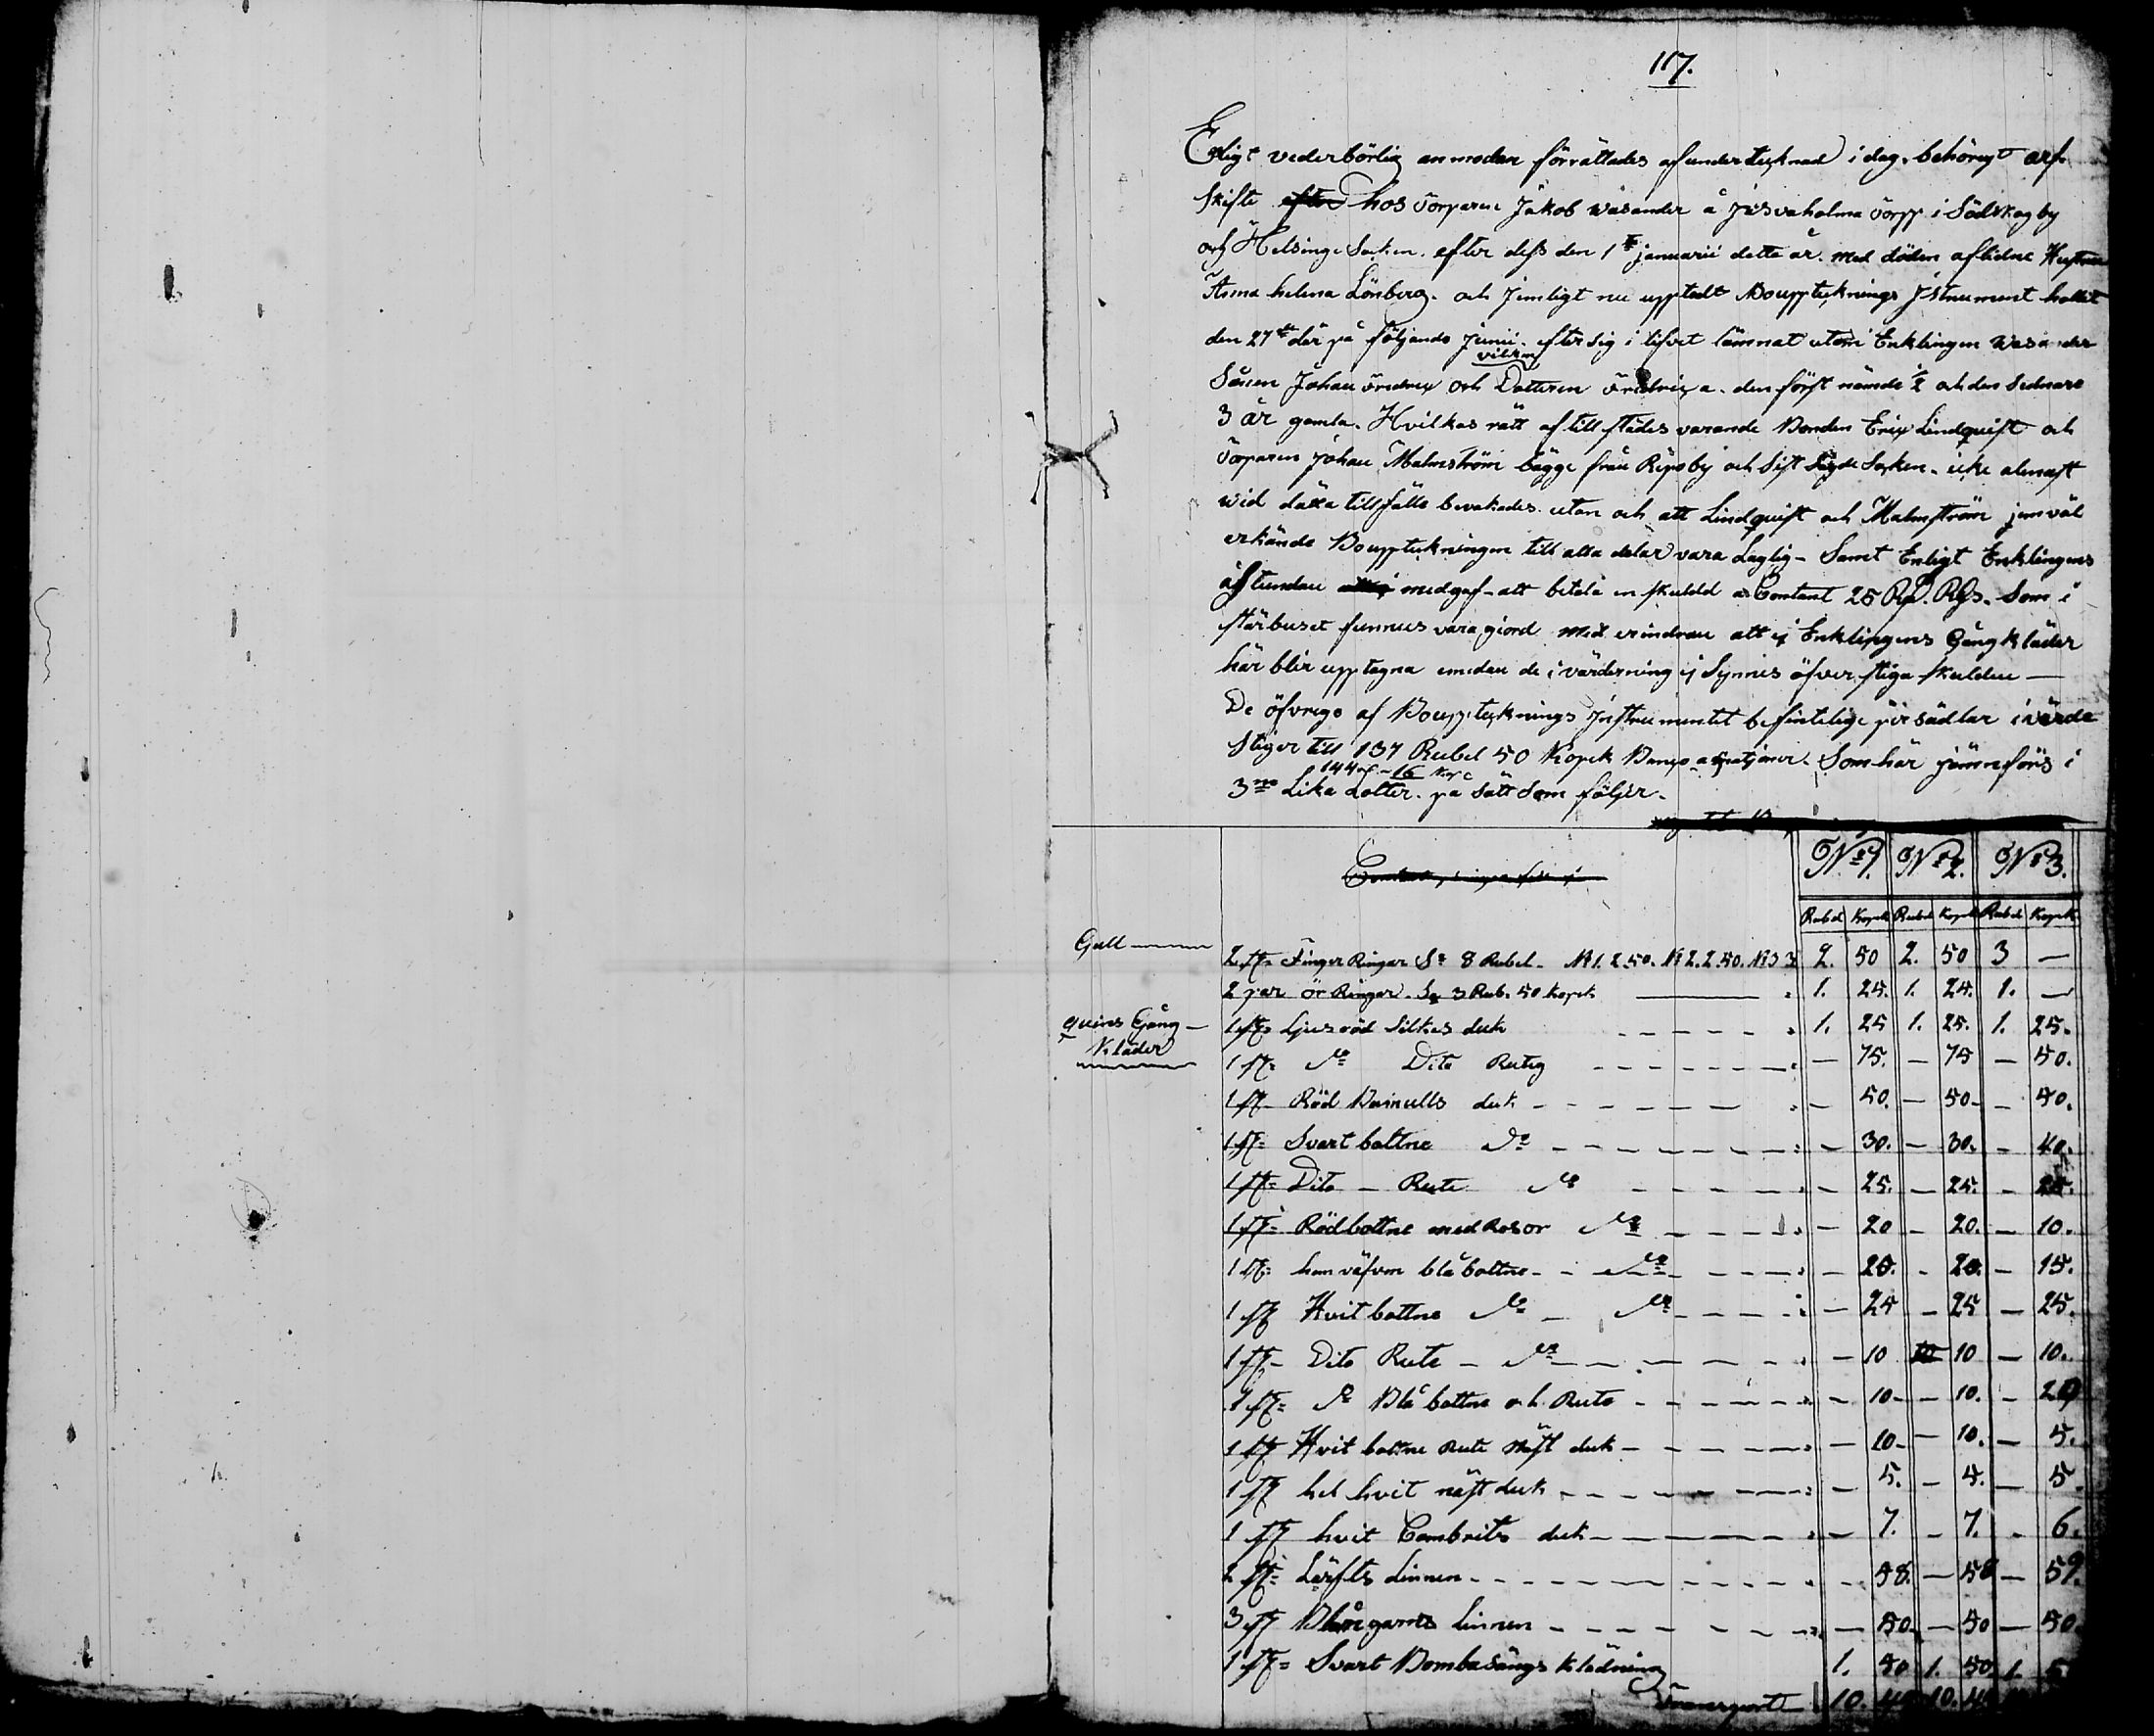 117.
Enligt vederbörlig anmodan förrättades af undertecknad i dag. behörigt arf
skifte efter hos Torparen Jakob Wasander å Torpp i Södskog by
och Helsinge Socken. efter dess den 1ste januarii detta år. med döden aflidne Hustru
Anna helena Lönberg. och Jemligt nu upptedt Boupptecknings Jstrument hollit
den 27de där på följande Junii. efter sig i lifvet lämnat utom Enklingen Wasander
vilhm
Sonen Johan och Dottren den först nämde 12 och den Sednare
3 år gamla. Hvilkas rätt af tillstädes varande Bonden Eric Lindquist och
Torparen Johan Malmström bägge från Ripsby och Sist Socken. icke
wid dätta tillfälle bevakades. utan och att Lindquist och Malmström jemväl
erkände Bouppteckningen till alla delar vara Laglig - Samt Enligt Enklingens
åstundan medgaf - att betala en skuldd a Contant 25 Som i
stärbuset funnits vara giord med erindran att ej Enklingens Gångkläder
här blir upptagna emedan de i värderning ej Synnes öfver stiga skulden —
De öfvrige af Boupptecknings Jnstrumentet befintelige pärsädlar i värde
Stiger till 137 Rubel 50 Kopek Banco Som här jämnförs i
144 16 Kopc
3ne Lika Lotter. på sätt Som följer.
No 1. No 2. No 3.
Rubel Kopek Rubel Kopek Rubel Kopek
Gull
2 st= Finger Ringar Sa 8 Rubel - N1. 2.50. N 2. 2.50. N3 3 2. 50 2. 50 3 —
2 par ör Ringar. Sa 3 Rub. 50 Kopek 1. 25. 1. 25. 1. —
quins Gång - 1 st= Ljusröd Silkes duk 1. 25 1. 25. 1. 25.
Kläder
1 st= do Dito Rutig — 75. — 75 — 50.
1 st- Röd Bomulls duk — 50. — 50 - 50.
1 st= Svart bottne do — 30. — 30. - 40.
1 st= Dito — Rute do — 25. — 25. — 25.
1 st= Rödbottne med Rosor do — 20 — 20. — 10.
1 st= hemväfven blå bottne - do — 20. - 20. — 15.
1 st Hvit bottne do — do — 25 — 25 — 25.
1 st - Dito Rute - do — 10 10 — 10.
1 st= do Blå bottne och Rute — 10 - 10. — 20
1 st Hvit bottne Rute Näst duk — 10 - 10. — 5.
1 st hel hvit näst duk — 5. — 5. — 5.
1 st hvit Cambrits duk — 7. — 7. — 6.
2 st= Lärfts Linnen — 58. — 58 — 59.
3 st Blångarns Linnen — 50. — 50 — 50.
1 st= Svart Bombasängs Klädning 1. 50 1. 50 1. 5
Transport 10. 40 10. 4